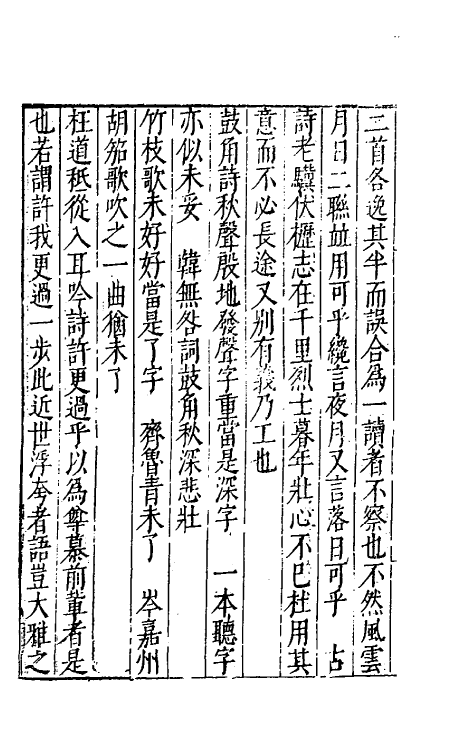 二首各逸其半而誤合為一讀者不察也不然風雲
月日二聯並用可乎纔言夜月又言落日可乎　古
詩老驥伏櫪志在千里烈士暮年壯心不已杜用其
意而不必長途又别有義乃工也
鼓角詩秋聲殷地發聲字重當是深字　一本聽字
亦似未妥　韓無咎詞鼓角秋深悲壯
竹枝歌未好好當是了字　齊魯青未了　岑嘉州
胡笳歌吹之一曲猶未了
枉道秪從入耳吟詩許更過乎以為尊慕前輩者是
也若謂許我更過一步此近世浮夸者語豈大雅之